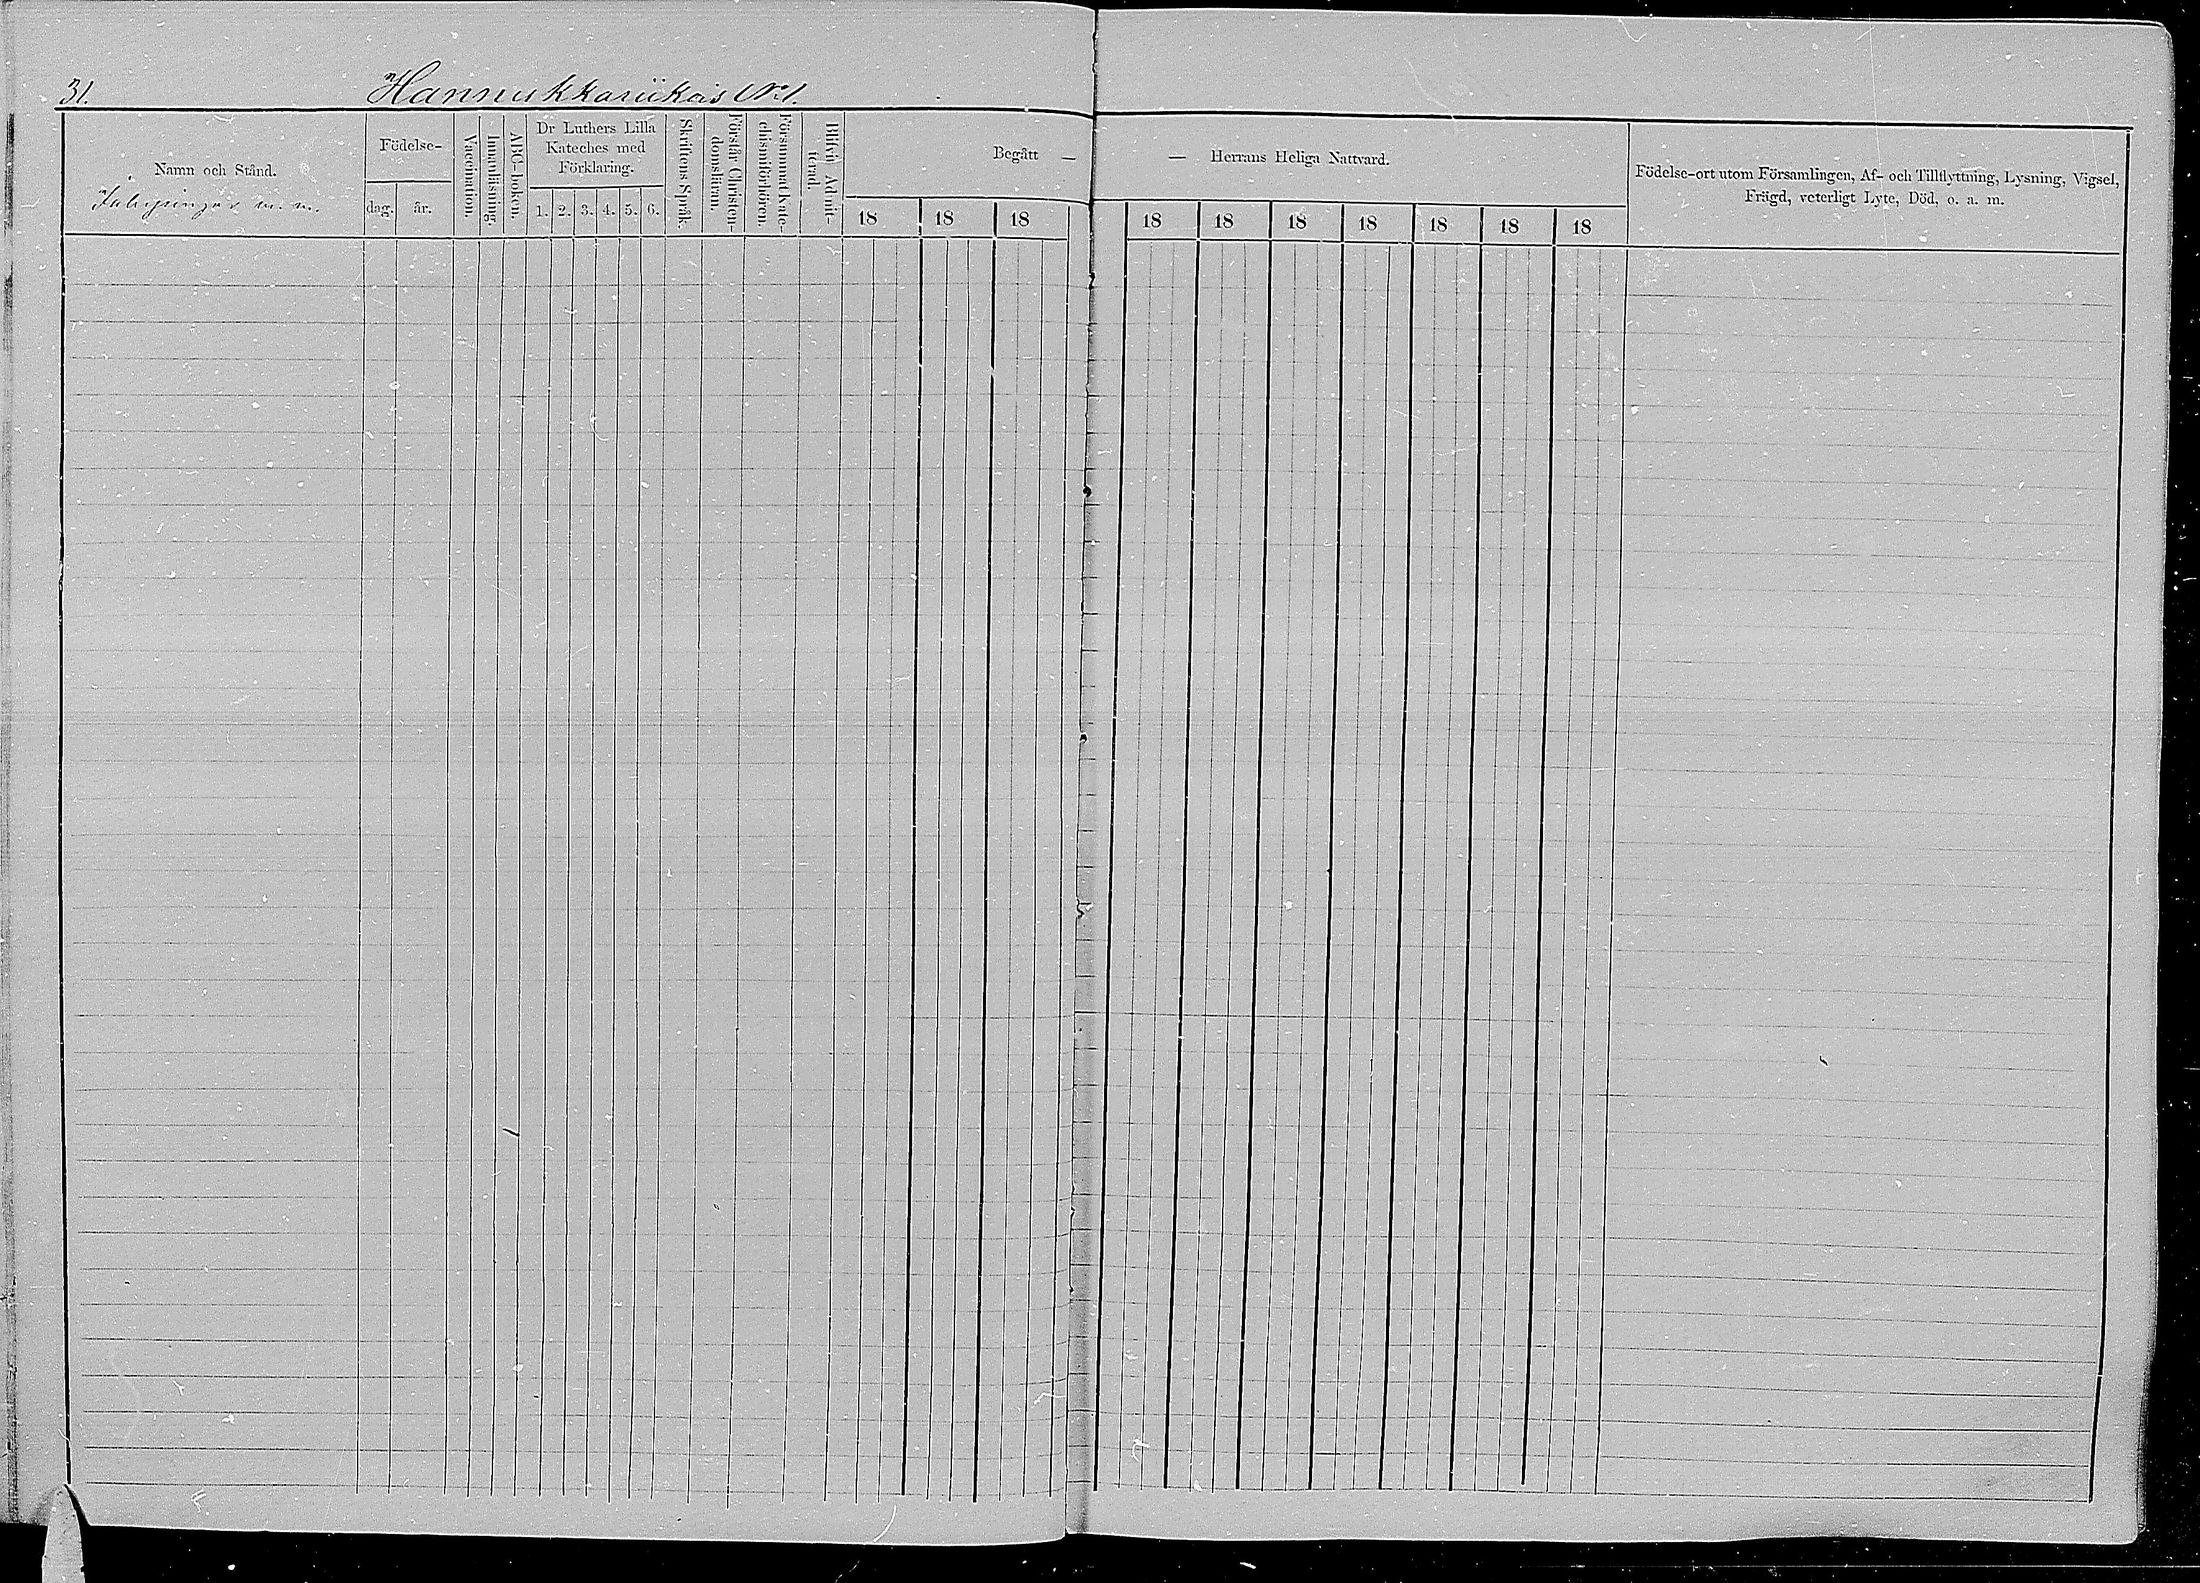 31. Hannukkariikois N:1.
Namn och Stånd.
Inhysingar m. m.
Födelse-
dag. år.
Vaccination.
Innanläsning.
ABC-boken
Dr Luthers Lilla
Kateches med
Förklaring.
1. 2. 3. 4. 5. 6.
Skriftens Språk.
Förstår Christen-
domsläran.
Försummat kate-
chismiförhören.
Blifvit Admit-
terad.
Begått —
18 18 18
— Herrans Heliga Nattvard.
18 18 18 18 18 18 18
Födelse-ort utom Församlingen, Af- och Tillflyttning, Lysning, Vigsel,
Frägd, veterligt Lyte, Död, o. a. m.